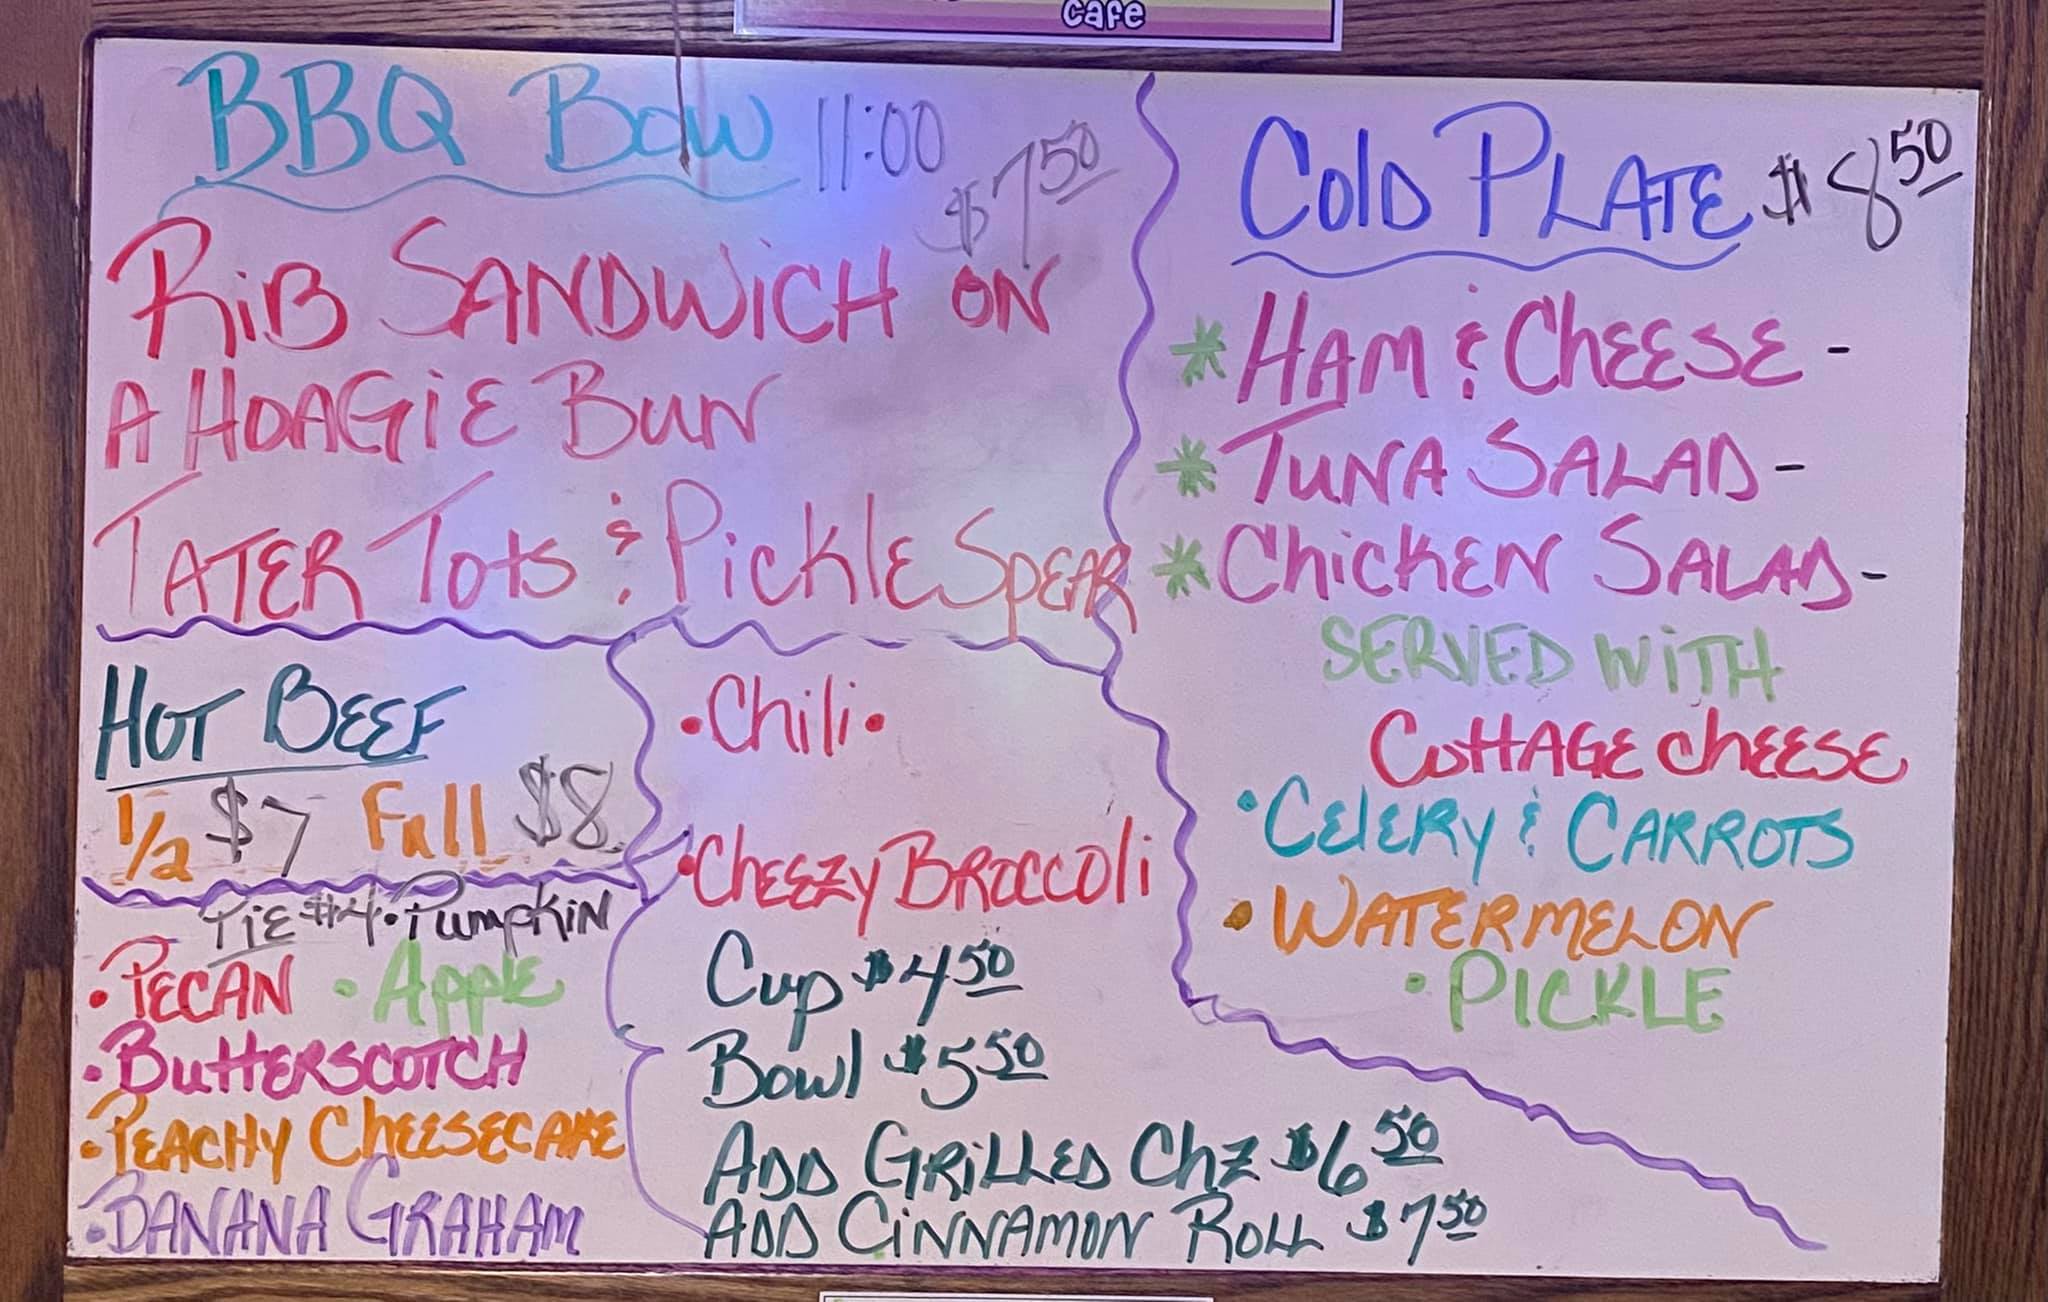 cafe
BBQ Bow 11:00
$7.50
RiB SANDWiCH ON
A HOAGiE BUN
TATER Tots & PickLE SpEAR
HOT BEEF
1/2 $7 Full $8
PiE $4 • PumpkiN
• PECAN • AppLE
• ButtERSCOTCH
• PEACHY CHEESECAKE
• BANANA GRAHAM
• Chili •
• CHEEZY BROCCOli
Cup $4.50
Bowl $5.50
ADD GRiLLED Chz $6.50
ADD CiNNAMON ROLL $7.50
Cold PLATE $8.50
* HAM & ChEESE -
* TUNA SALAD -
* ChickEN SALAD -
SERVED WiTH
CottAGE chEESE
• CElERY & CARROTS
• WATERMELON
• PICKLE